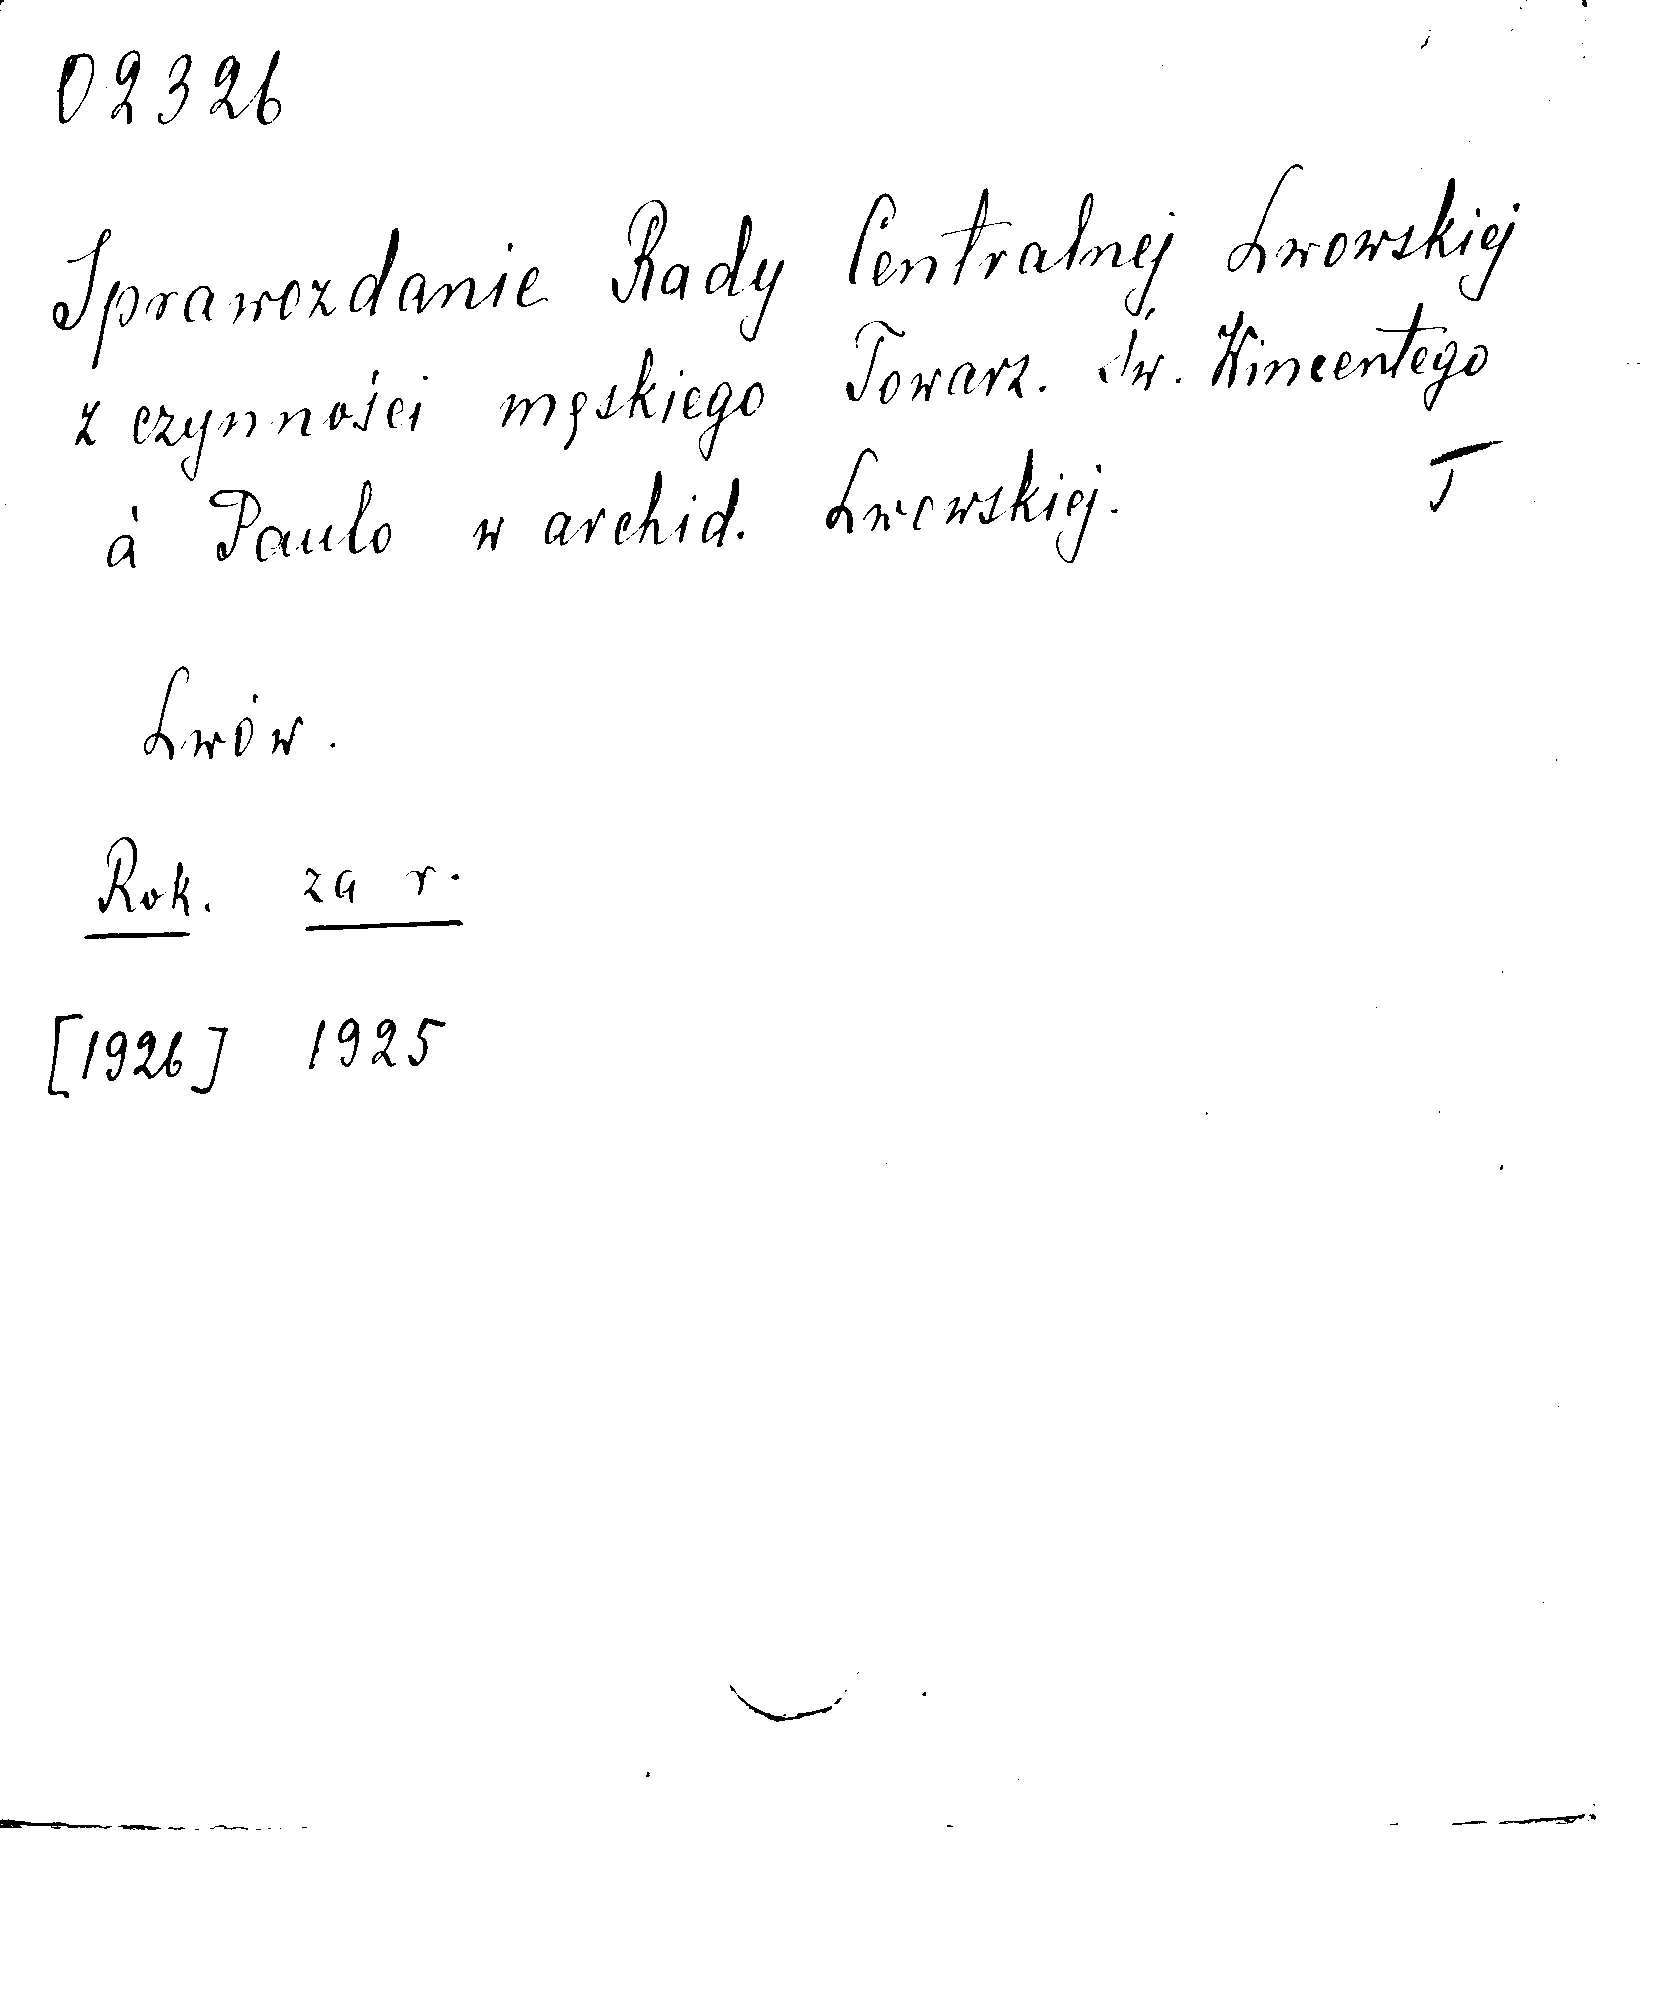 02326
Sprawozdanie Rady Centralnej Lwowskiej
z czynności męskiego Towarz. Św. Wincentego
à Paulo w archid. Lwowskiej. T
Lwów.
Rok. za r.
[1926] 1925